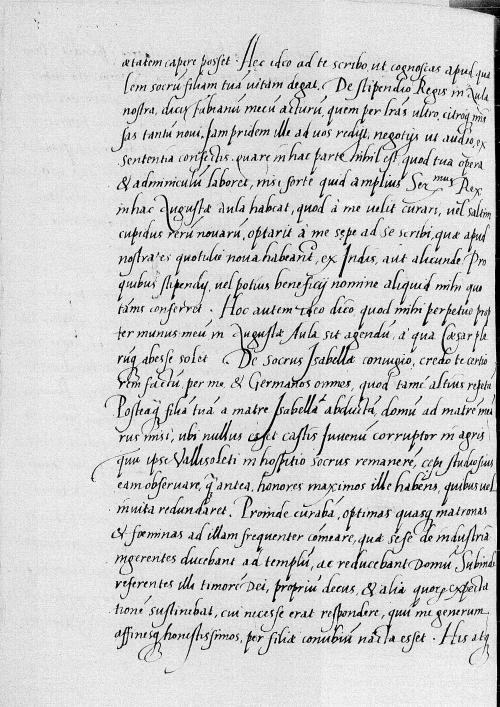 ætatem capere posset. Hec ideo ad te scribo, ut cognoscas apud qua
lem socrū filiam tuā vitam degat. De stipendio Regis in Aula
nostra, dicis Fabianū mecū acturū, quem per lras ultro, citroq mis
sas tantū novi. Iam pridem ille ad vos redijt, negotijs ut audio, ex
sententia confectis. quare in hac parte nihil est, quod tua opera
& adminiculū laboret, nisi forte quid amplius Ser.mus Rex
in hac Augustæ aula habeat, quod à me velit curari, vel saltim
cupidus rerū novarū, optarit à me sepe ad se scribi, quæ apud
nostrates quotidie nova habeant, ex Indis, aut aliunde. Pro
quibus stipendij, vel potius beneficij nomine aliquid mihi quo
tānis conferret. Hoc autem ideo dico quod mihi perpetuo prop
ter munus meū in Augustæ Aula sit agendū, à qua Cæsar ple
rūq abesse solet. De socrus Isabellæ coniugio, credo te certio
rem factū, per me, & Germanos omnes, quod tamē altius repetā
Posteaq filiā tuā a matre Isabella abductā, domū ad matrē mu
rus misi, ubi nullus esset castis Iuvenū corruptor in agris
quū ipse Vallisoleti in hospitio socrus remanerē, cepi studiosius
eam observare, q antea, honores maximos ille habens, quibus vel
invita redundaret. Proinde curabā, optimas quasq matronas
& fœminas ad illam frequenter cōmeare, quæ sese de industria
ingerentes ducebant ad templū, ac reducebant domū. Subinde
referentes illi timorē Dei, propriū decus, & alia quoq expecta
tionē sustinebat, cui necesse erat respondere, quū me generum
affinesq honestissimos, per filiæ conubiū nacta esset. His atq